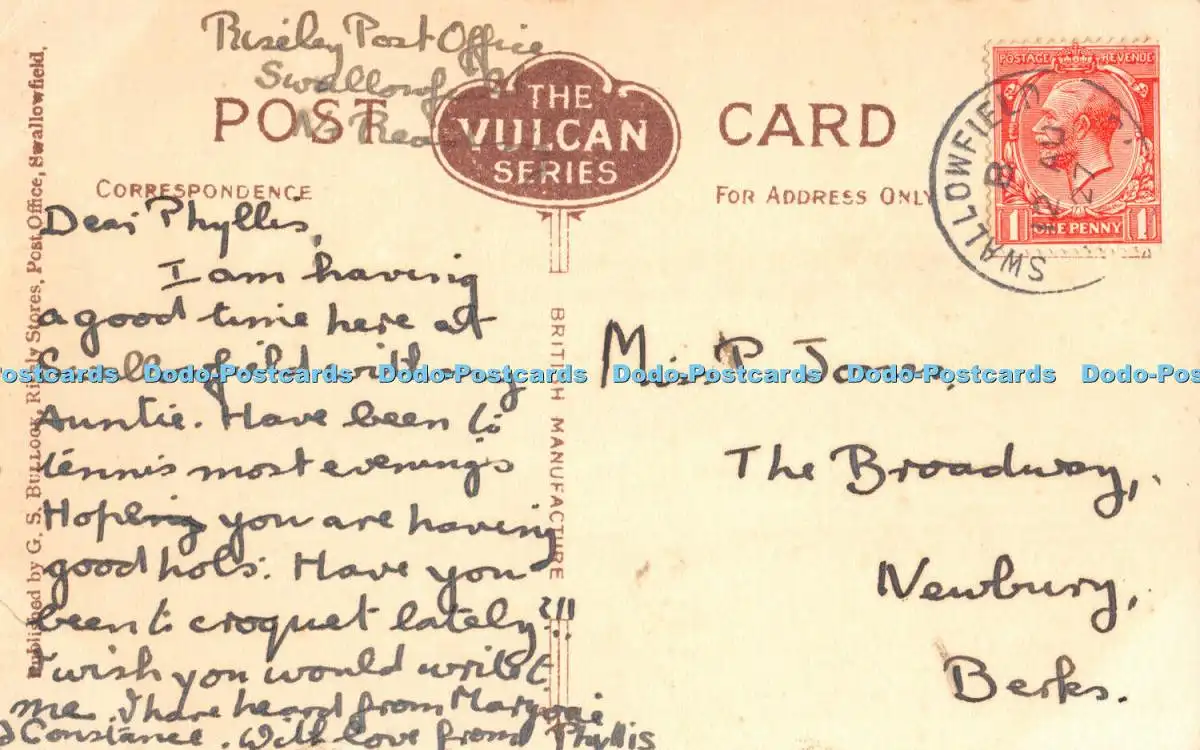 Riseley Post Office
Swallowfield
Nr Reading
POST CARD
THE
VULCAN
SERIES
CORRESPONDENCE
FOR ADDRESS ONLY
POSTAGE REVENUE
1 ONE PENNY 1
SWALLOWFIELD
B
12 AU
27
Dear Phyllis,
I am having
a good time here at
Swallowfield with my
Auntie. Have been to
tennis most evenings
Hoping you are having
good hols: Have you
been to croquet lately?!!!
I wish you would write t
me. I have heard from Marjorie
d Constance. With love from Phyllis
Miss P. Jones,
The Broadway,
Newbury,
Berks.
BRITISH MANUFACTURE
Published by G. S. BULLOCK, Risly Stores, Post Office, Swallowfield,
ostcards Dodo-Postcards Dodo-Postcards Dodo-Postcards Dodo-Postcards Dodo-Pos